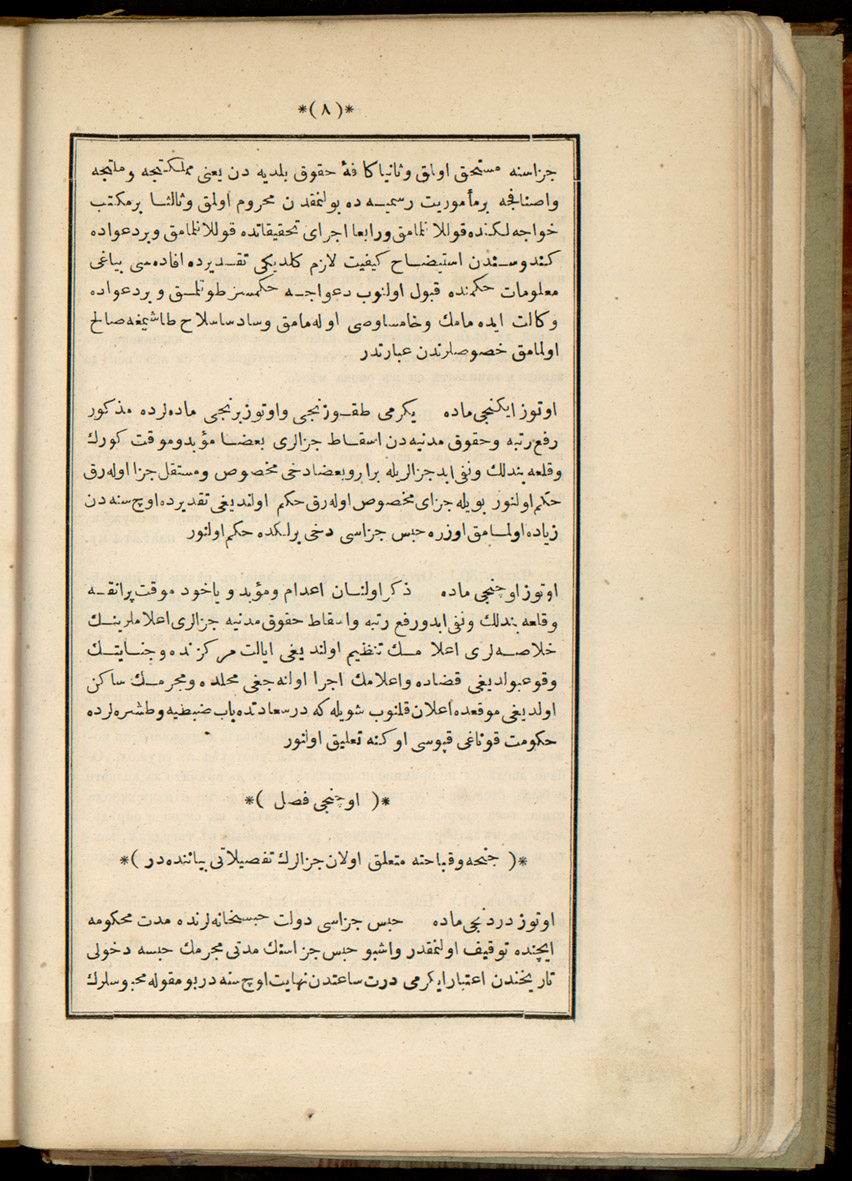 *(٨)*
جزاسنه مستحق اولمق وثانیا کافهٔ حقوق بلدیه دن یعنی مملکتجه وملتجه
واصنافجه برمأموریت رسمیه ده بولنمقدن محروم اولمق وثالثا برمکتب
خواجه لکنده قوللانلمامق ورابعا اجرای تحقیقاتده قوللانلمامق وبردعواده
کندوسندن استیضاح کیفیت لازم کلدیکی تقدیرده افاده سی بیاغی
معلومات حکمنده قبول اولنوب دعواجه حکمسز طوتلمق و بردعواده
وکالت ایده مامك وخامسا وصی اوله مامق وسادسا سلاح طاشیمغه صالح
اولمامق خصوصلرندن عبارتدر
اوتوز ایکنجی ماده یکرمی طقوزنجی واوتوز برنجی ماده لرده مذکور
رفع رتبه وحقوق مدنیه دن اسقاط جزالری بعضا مؤبد وموقت کورك
وقلعه بندلك ونفی ابد جزالریله برابر وبعضا دخی مخصوص ومستقل جزا اوله رق
حکم اولنور بویله جزای مخصوص اوله رق حکم اولندیغی تقدیرده اوچ سنه دن
زیاده اولمامق اوزره حبس جزاسی دخی برلکده حکم اولنور
اوتوز اوچنجی ماده ذکر اولنان اعدام ومؤبد و یاخود موقت پرانقه
وقلعه بندلك ونفی ابد ورفع رتبه واسقاط حقوق مدنیه جزالری اعلاملرینك
خلاصه لری اعلامك تنظیم اولندیغی ایالت مرکزنده وجنایتك
وقوعبولدیغی قضاده واعلامك اجرا اولنه جغی محلده ومجرمك ساکن
اولدیغی موقعده اعلان قلنوب شویله که درسعادتده باب ضبطیه وطشره لرده
حکومت قوناغی قپوسی اوکنه تعلیق اولنور
*( اوچنجی فصل )*
*( جنحه وقباحته متعلق اولان جزالرك تفصیلاتی بیاننده در )*
اوتوز دردنجی ماده حبس جزاسی دولت حبسخانه لرنده مدت محکومه
ایچنده توقیف اولنمقدر واشبو حبس جزاسنك مدتی مجرمك حبسه دخولی
تاریخندن اعتبارا یکرمی درت ساعتدن نهایت اوچ سنه در بو مقوله محبوسلرك